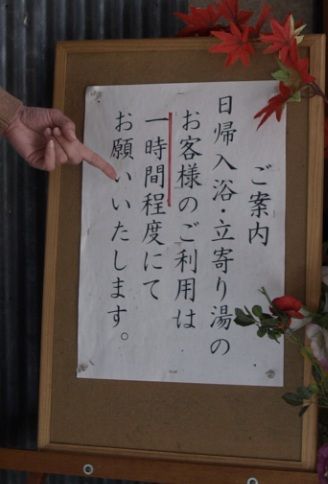 ご案内
日帰入浴・立寄り湯の
お客様のご利用は
一時間程度にて
お願いいたします。